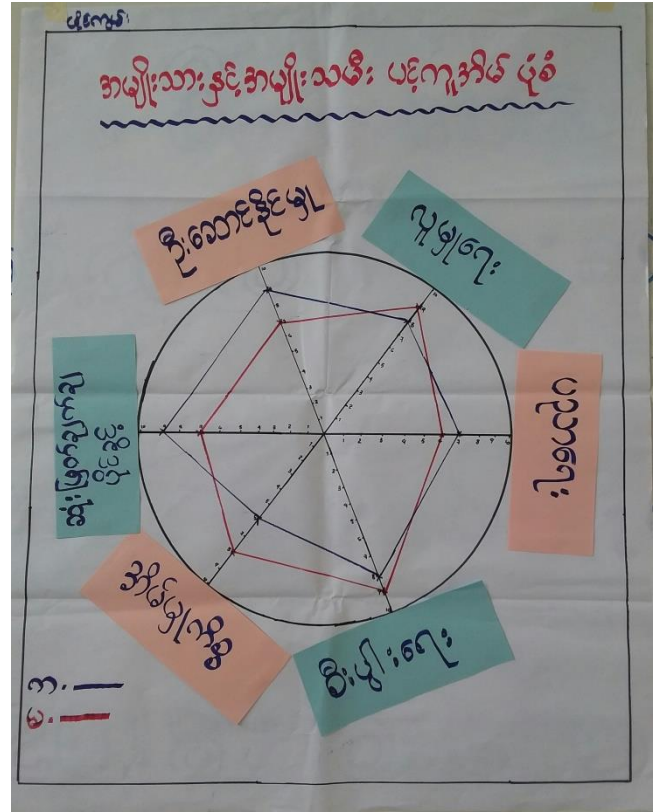 အမျိုးသားနှင့်အမျိုးသမီး ပင့်ကူအိမ် ပုံစံ
ဦးဆောင်နိုင်မှု
လူမှုရေး
ပညာရေး
စီးပွါးရေး
အိမ်မှုကိစ္စ
ဆုံးဖြတ်ပိုင်ခွင့်
က .
မ .